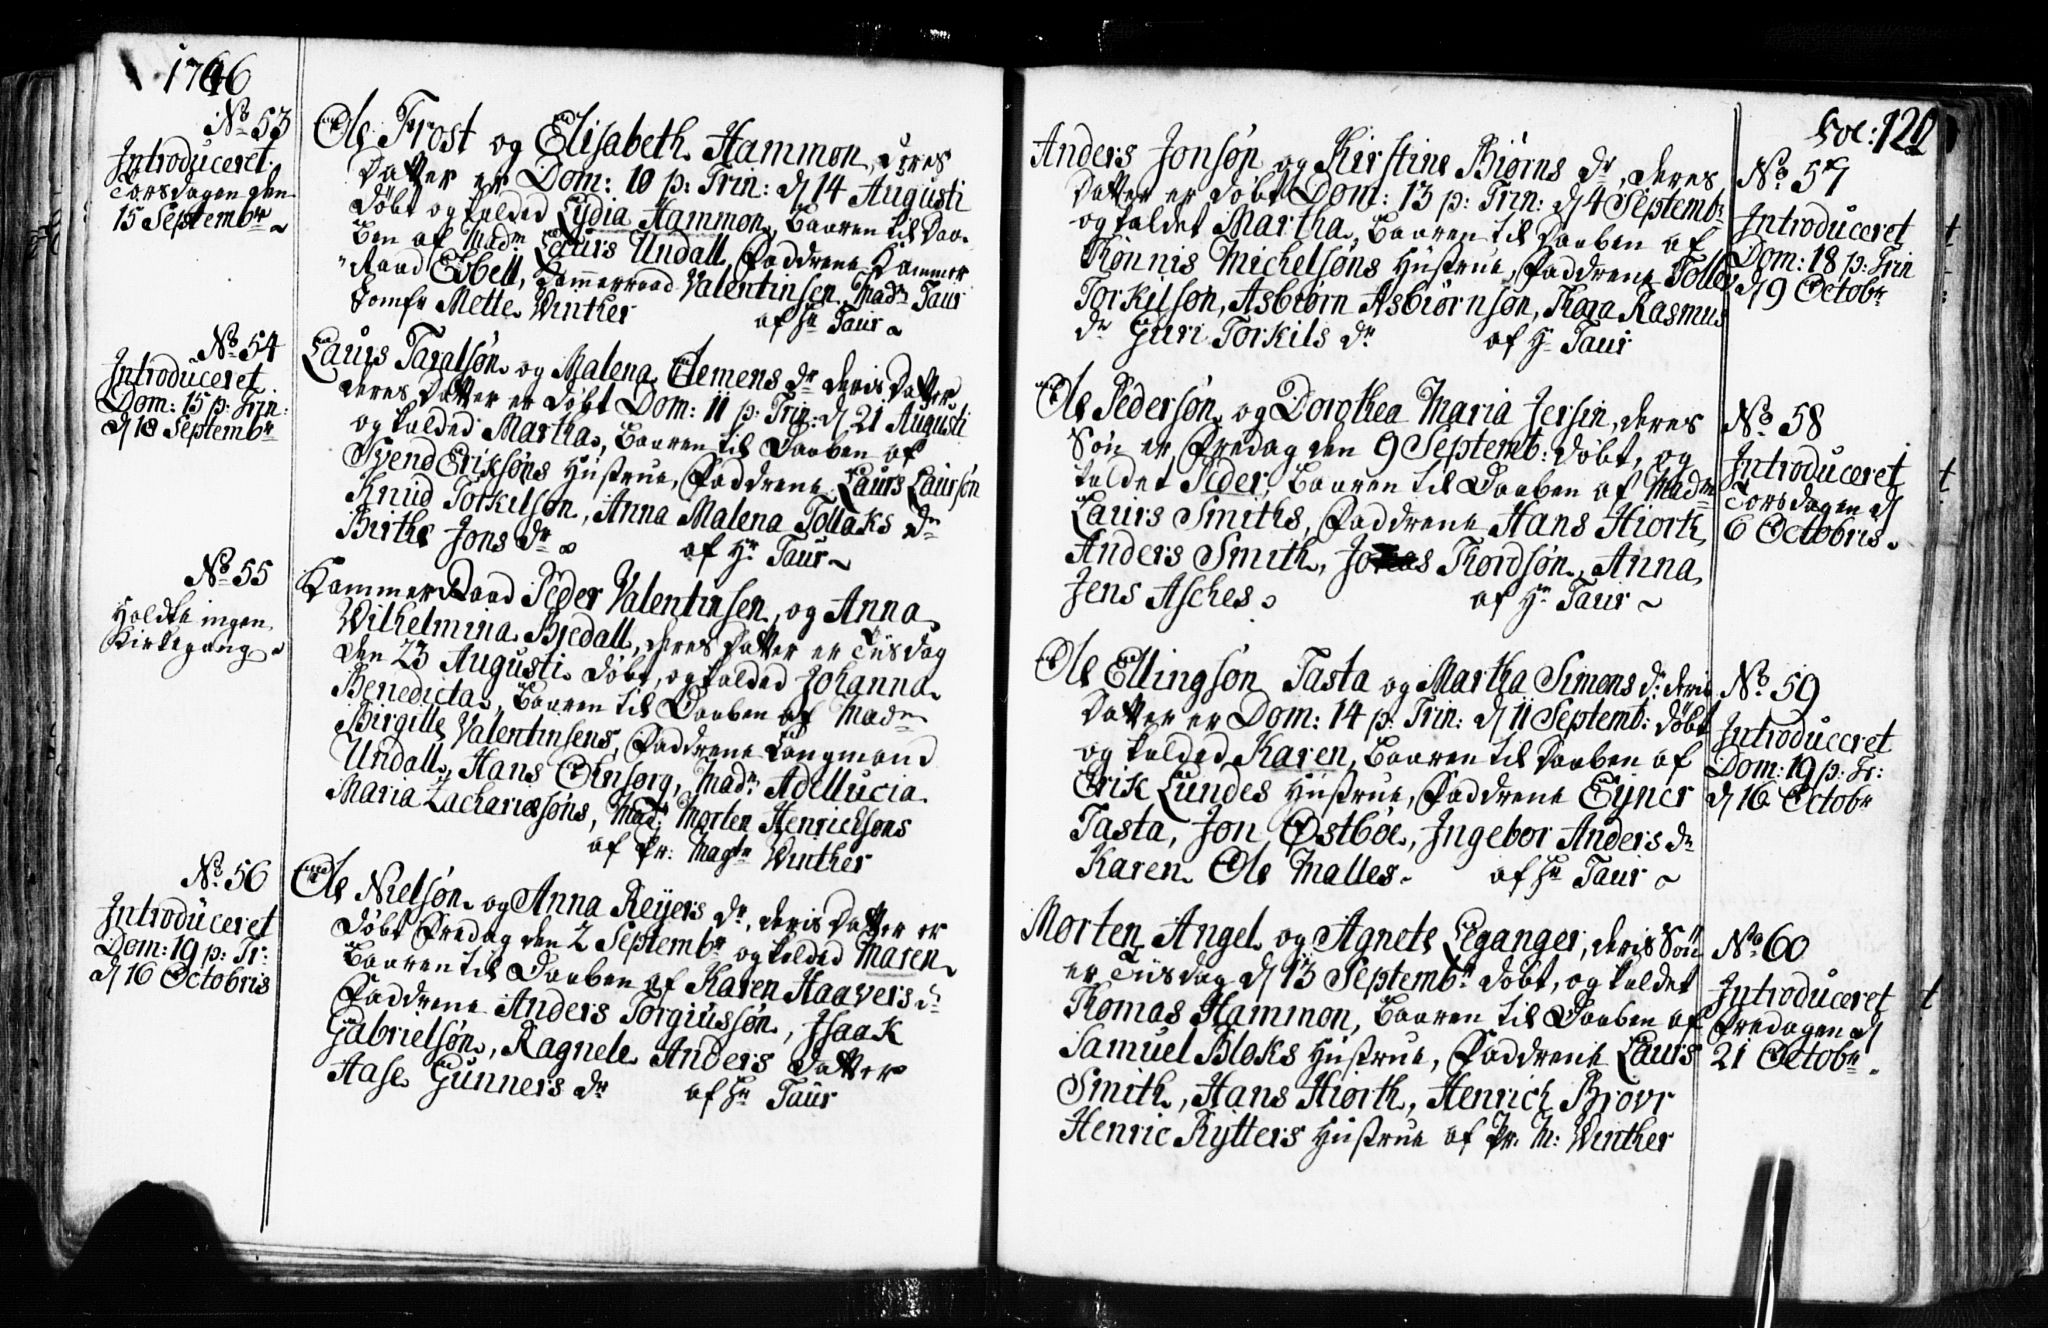 1746
No 53
Introduceret
Torsdagen den
15 Septembr
Ole Frost og Elisabeth Hammon, deres
Datter er Dom: 10 p: Trin: d 14 Augusti
døbt og kalded Lydia Hammon, Baaren til Daa-
ben af Madm Laurs Undall, Faddrene Kammer
Raad Ebbell, Kammerraad Valentinsen, Madm Taur
Jomfr Mette Winther af Hr Taur
No 54
Introduceret
Dom: 15 p: Trin:
d 18 Septembr
Laurs Taralsøn og Malena Clemens dr deris Datter
deres Datter er døbt Dom: 11 p: Trin: d 21 Augusti
og kalded Martha, Baaren til Daaben af
Svend Eriksøns Hustrue, Faddrene Laurs Laursøn
Knud Torkilsøn, Anna Malena Tollaks dr
Birthe Jons dr af Hr Taur
No 55
Holdte ingen
Kirkegang
Kammer Raad Peder Valentinsen, og Anna
Wilhelmina Bredall, deres Datter er Tiisdag
den 23 Augusti døbt, og kalded Johanna
Benedicta, Baaren til Daaben af Madm
Birgitte Valentinsens, Faddrene Laugmand
Undall, Hans Ohnsorg, Madm Adellucia
Maria Zachariæsøns, Madm Morten Henricksøns
af Pr: Magr Winther
No 56
Introduceret
Dom: 19 p: Tr:
d 16 Octobris
Ole Nielsøn og Anna Reijers dr, deris Datter er
døbt Fredag den 2 Septembr og kalded Maren
Baaren til Daaben af Karen Haavers dr
Faddrene Anders Torgiussøn, Isaak
Gabrielsøn, Ragnele Anders Datter
Aase Gunners dr af Hr Taur
Fol: 120
Anders Jonsøn og Kirstine Biørns dr, deres
Datter er døbt Dom: 13 p: Trin: d 4 Septembr
og kaldet Martha, Baaren til Daaben af
Rønnis Michelsøns Hustrue, Faddrene Tollev
Torkilsøn, Asbiørn Asbiørnsøn, Thora Rasmus
dr Guri Torkils dr af Hr Taur
No 57
Introduceret
Dom: 18 p: Trin
d 9 Octobr
Ole Pedersøn og Dorothea Maria Jersin, deres
Søn er Fredag den 9 Septemb: døbt, og
kaldet Peder, Baaren til Daaben af Madm
Laurs Smiths, Faddrene Hans Hiorth
Anders Smith, Thordsøn, Anna
Jens Asches af Hr Taur
No 58
Introduceret
Torsdagen d
6 Octobris
Ole Ellingsøn Tasta og Martha Simons dr deris
Datter er Dom: 14 p: Trin: d 11 Septemb: døbt
og kalded Karen, Baaren til Daaben af
Erik Lundes Hustrue, Faddrene Eyner
Tasta, Jon Østbøe, Ingebor Anders dr
Karen Ole Malles af Hr Taur
No 59
Introduceret
Dom: 19 p: Tr:
d 16 Octobr
Morten Angel og Agnete Leganger, deris Søn
er Tiisdag d 13 Septembr døbt, og kaldet
Thomas Hammon, Baaren til Daaben af
Samuel Bloks Hustrue, Faddrene Laurs
Smith, Hans Hiorth, Henrich Brovr
Henric Rytters Hustrue af Pr: M: Winther
No 60
Introduceret
Fredagen d
21 Octobr